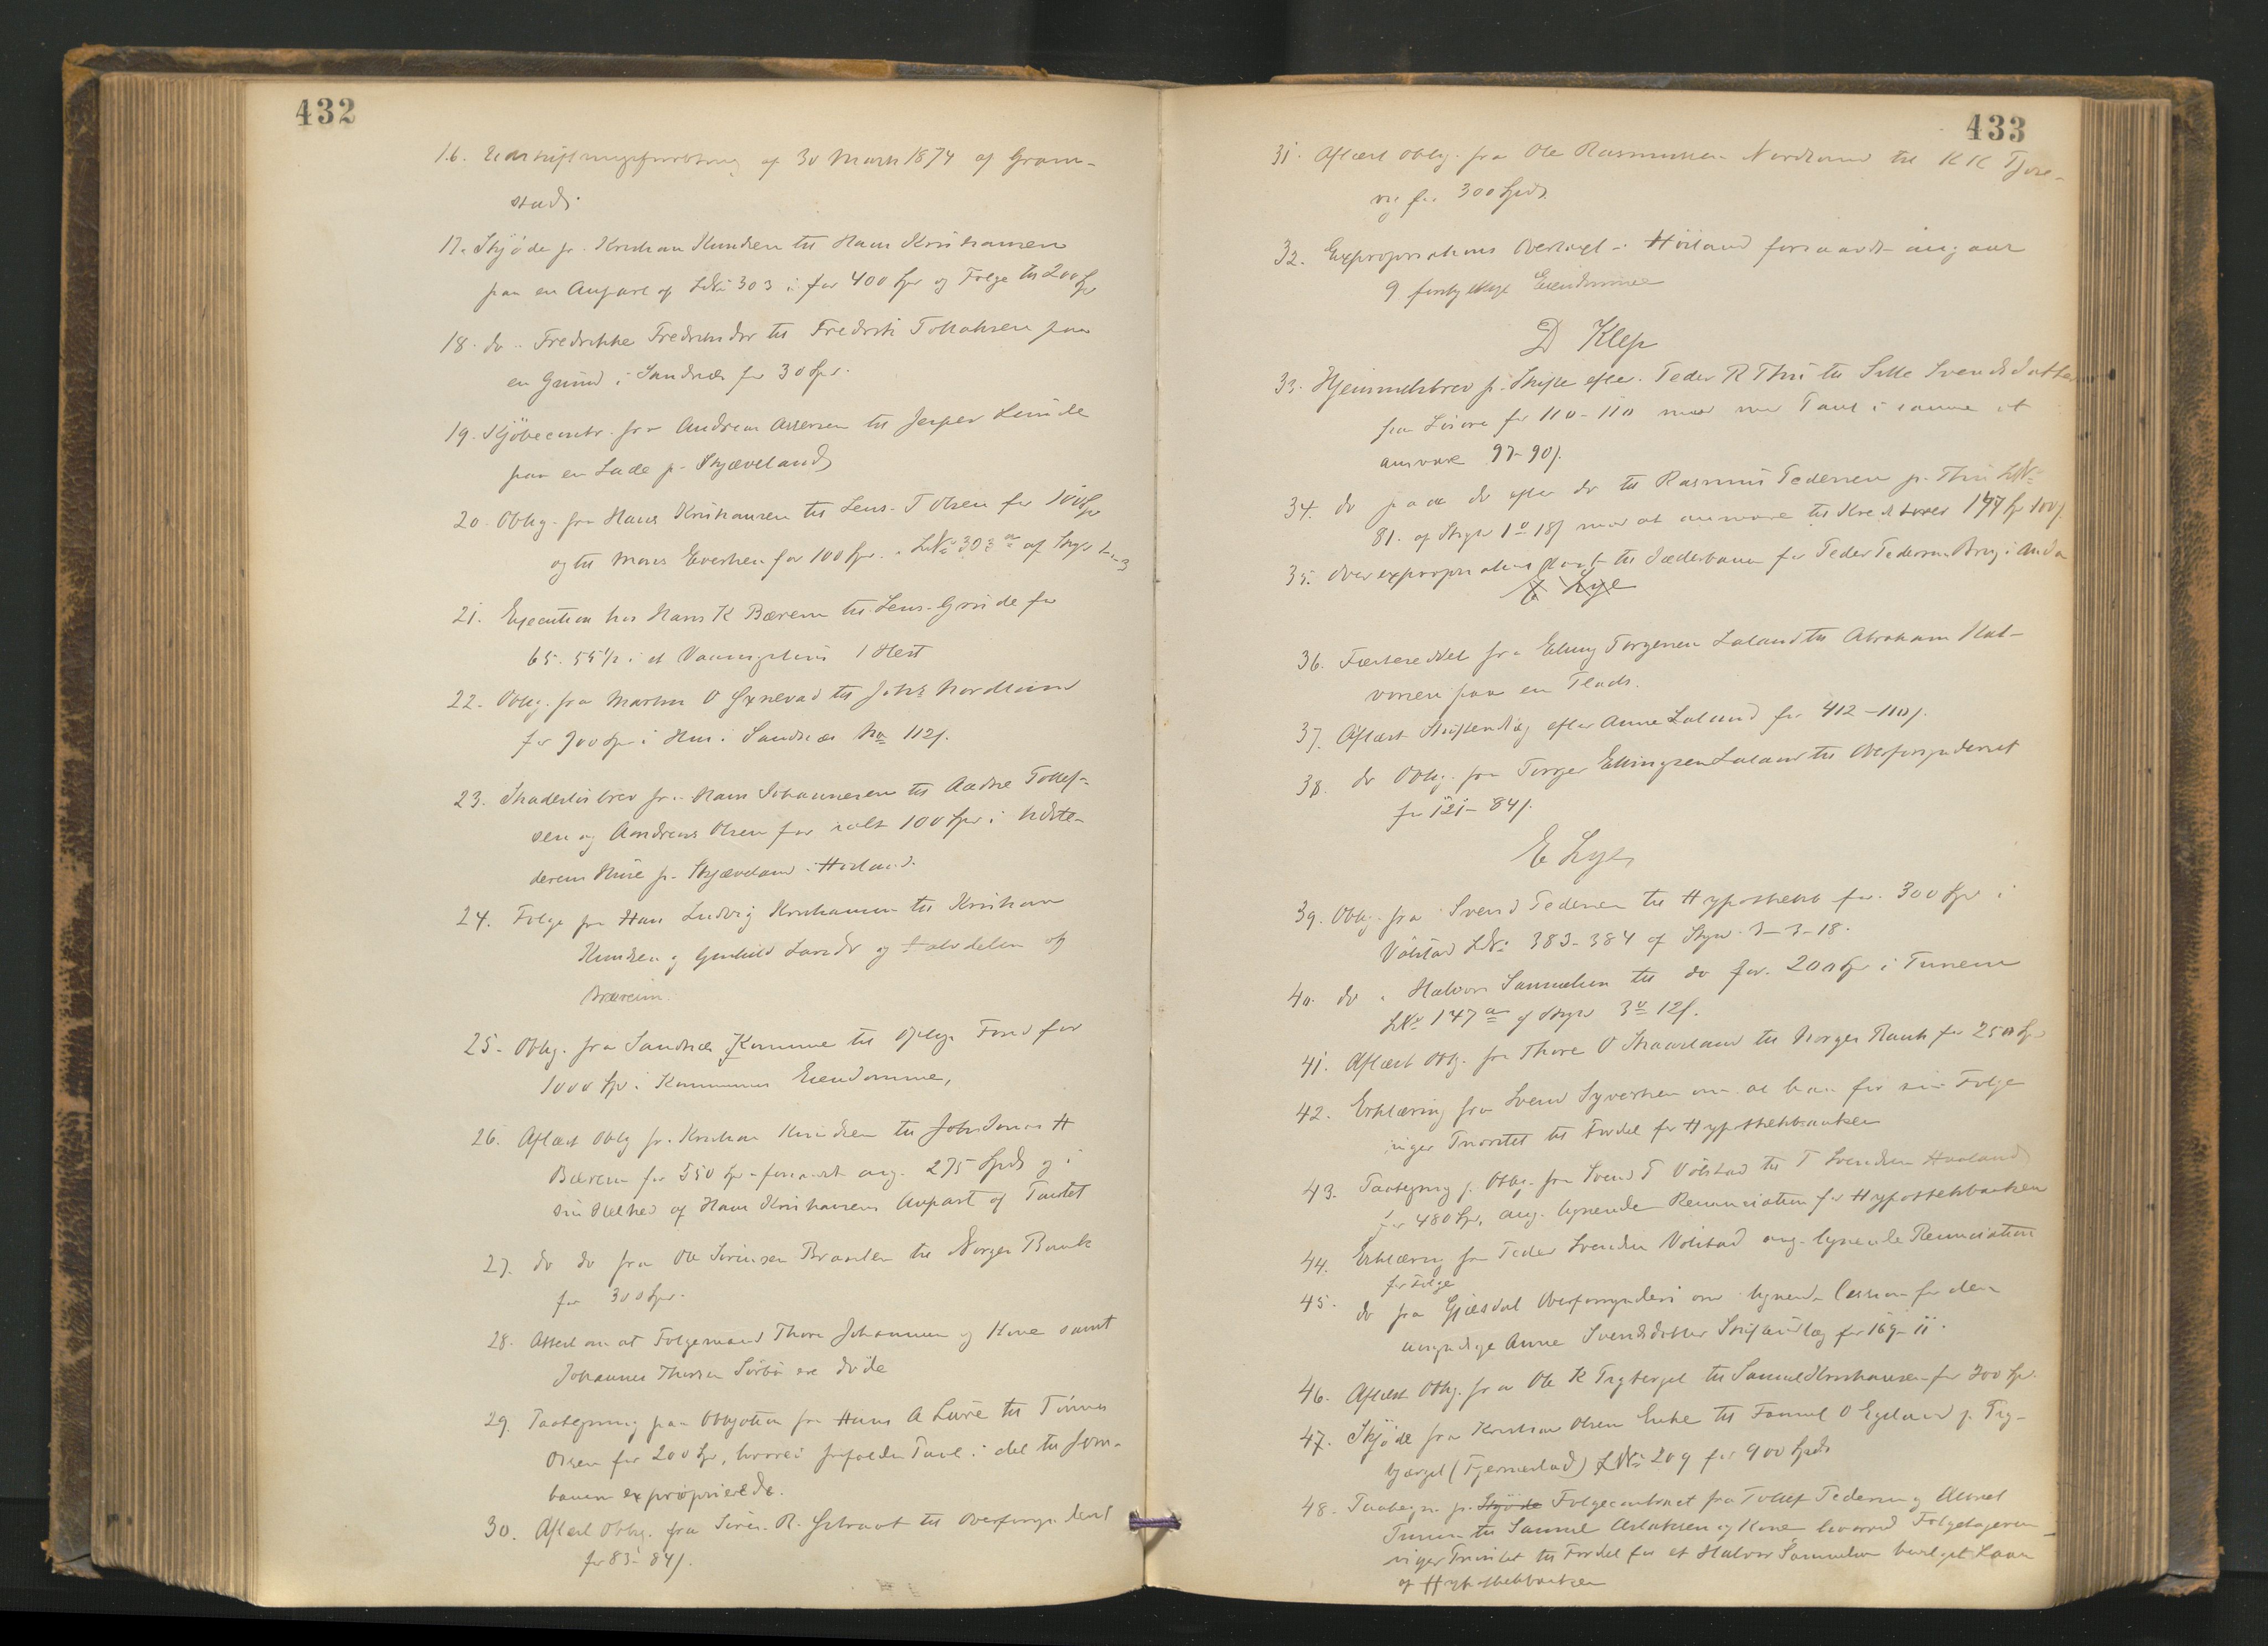 432
16. Udskiftningsforretning af 30 Marts 1874 af Gram-
stad.
17. Skjøde fr. Kristian Knudsen til Hans Kristiansen
paa en Anpart af LNo 303 i for 400 Spd og Folge til 200 Spd
18. do - Fredrikke Fredriksdtr til Fredrik Tollaksen paa
en Grund i Sandnæs for 30 Spd.
19. Kjøbecontr. fra Andreas Assersen til Jesper Lunde
paa en Lade p. Skjæveland
20. Oblig. fra Hans Kristiansen til Lens. T Olsen for 100 Spd
og til Mons Evertsen for 100 Spd. i LNo 303 a af Skyld 1-
21. Execution hos Hans K Bærem til Lens. Grude for
65. 55 1/2 i et Vaaningshus 1 Hest
22. Oblig. fra Martin O Gxnevad til Johs Nordlund
for 900 Spd i Hus i Sandnæs No 112 f.
23. Skadesløsbrev fra Hans Johannesen til Aadne Tollef-
sen og Andreas Olsen for ialt 100 Spd i Udste-
derens Huse p. Skjæveland i Høiland.
24. Folge fra Hans Ludvig Kristiansen til Kristian
Knudsen og Gunhild Larsdr og
Bæreim.
25. Oblig. fra Sandnæs Komune til Oplys. Fond for
1000 Spd i Kommunens Eiendomme,
26. Aflæst Oblig fr. Kristian Knudsen til John Jonas H
Bærem for 550 Spd forsaavidt ang. 275 Spd og i
sin Helhed af Hans Kristiansens Anpart af Pantet
27. do do fra Ole Sørensen Braaten til Norges Bank
for 300 Spd.
28. Attest om at Folgemand Thore Johannesen og Kone samt
Johannes Thorsen Sørbø ere døde
29. Paategning paa Obligation fra Hans A Lure til Tønnes
Olsen for 200 Spd, hvorved frafaldes Pant i det til Jern-
banen exproprierede.
30. Aflæst Oblig. fra Sören R. Gxtravat til Overformynderiet
for 83 - 84 f.
433
31. Aflæst Oblig. fra Ole Rasmussen Nordland til K K Tjose-
vig for 300 Spd.
32. Expropriations Overtaxt i Høiland forsaavidt angaar
9 forskjellige Eiendomme
D Klep
33. Hjemmelsbrev p. Skifte efter Peder R Thu til Sille Svendsdatter
fra Lœœœ for 110-110 mod Pant i samme at
ansvare 97-90 f.
34. do paa do efter do til Rasmus Pedersen p. Thu LNo
81. af Skyld 1 0 18 f mod at ansvare til Kreditorer 177 Spd 100 f.
35. Overexpropriations taxt til Jæderbanen for Peder Pedersens Brug i Anda
E Lye
36. Fæsteseddel fra Elling Torgersen Laland til Abraham Hal-
vorsen paa en Plads.
37. Aflæst Skifteudlæg efter Anne Laland for 412-110 f.
38. do Oblig. fra Torger Ellingsen Laland til Overformynderiet
for 121-84 f.
E Lye,
39. Oblig. fra Svend Pedersen til Hypothekb for 300 Spd i
Vølstad LNo 383-384 af Skyld 3-3-18.
40. do " Halvor Samuelsen til do for. 200 Spd i Tunem
LNo 147 a af Skyld 3 0 12 f.
41. Aflæst Oblig. fra Thore O Skaarland til Norges Bank for 250 Spd
42. Erklæring fra Svend Syvertsen om at han for sin Folge
viger Prioritet til Fordel for Hypothekbanken
43. Paategning p. Oblig. fra Svend P Vølstad til T Svendsen Haaland
for 480 Spd, ang. lignende Renunciation for Hypothekbanken
44. Erklæring fra Peder Svendsen Vølstad ang. lignende Renunciation
for Folge
45. do fra Gjæsdal Overformynderi om lignende Cession for den
umyndige Anne Svendsdatter Skifteudlæg for 169 - 11.
46. Aflæst Oblig. fra Ole K Tagbergel til Samuel Kristiansen for 200 Spd.
47. Skjøde fra Kristian Olsens Enke til Samuel O Egeland p. Tyg-
bjærgel (Fjermestad) LNo 209 for 900 Spd
48. Paategn. p. Skjøde Folgecontract fra Tollef Pedersen og
Tunem til Samuel Aslaksen og Kone hvorved Folgetageren
viger Prioritet til Fordel for et Halvor Samuelsen bevilget Laan
af Hypothekbanken